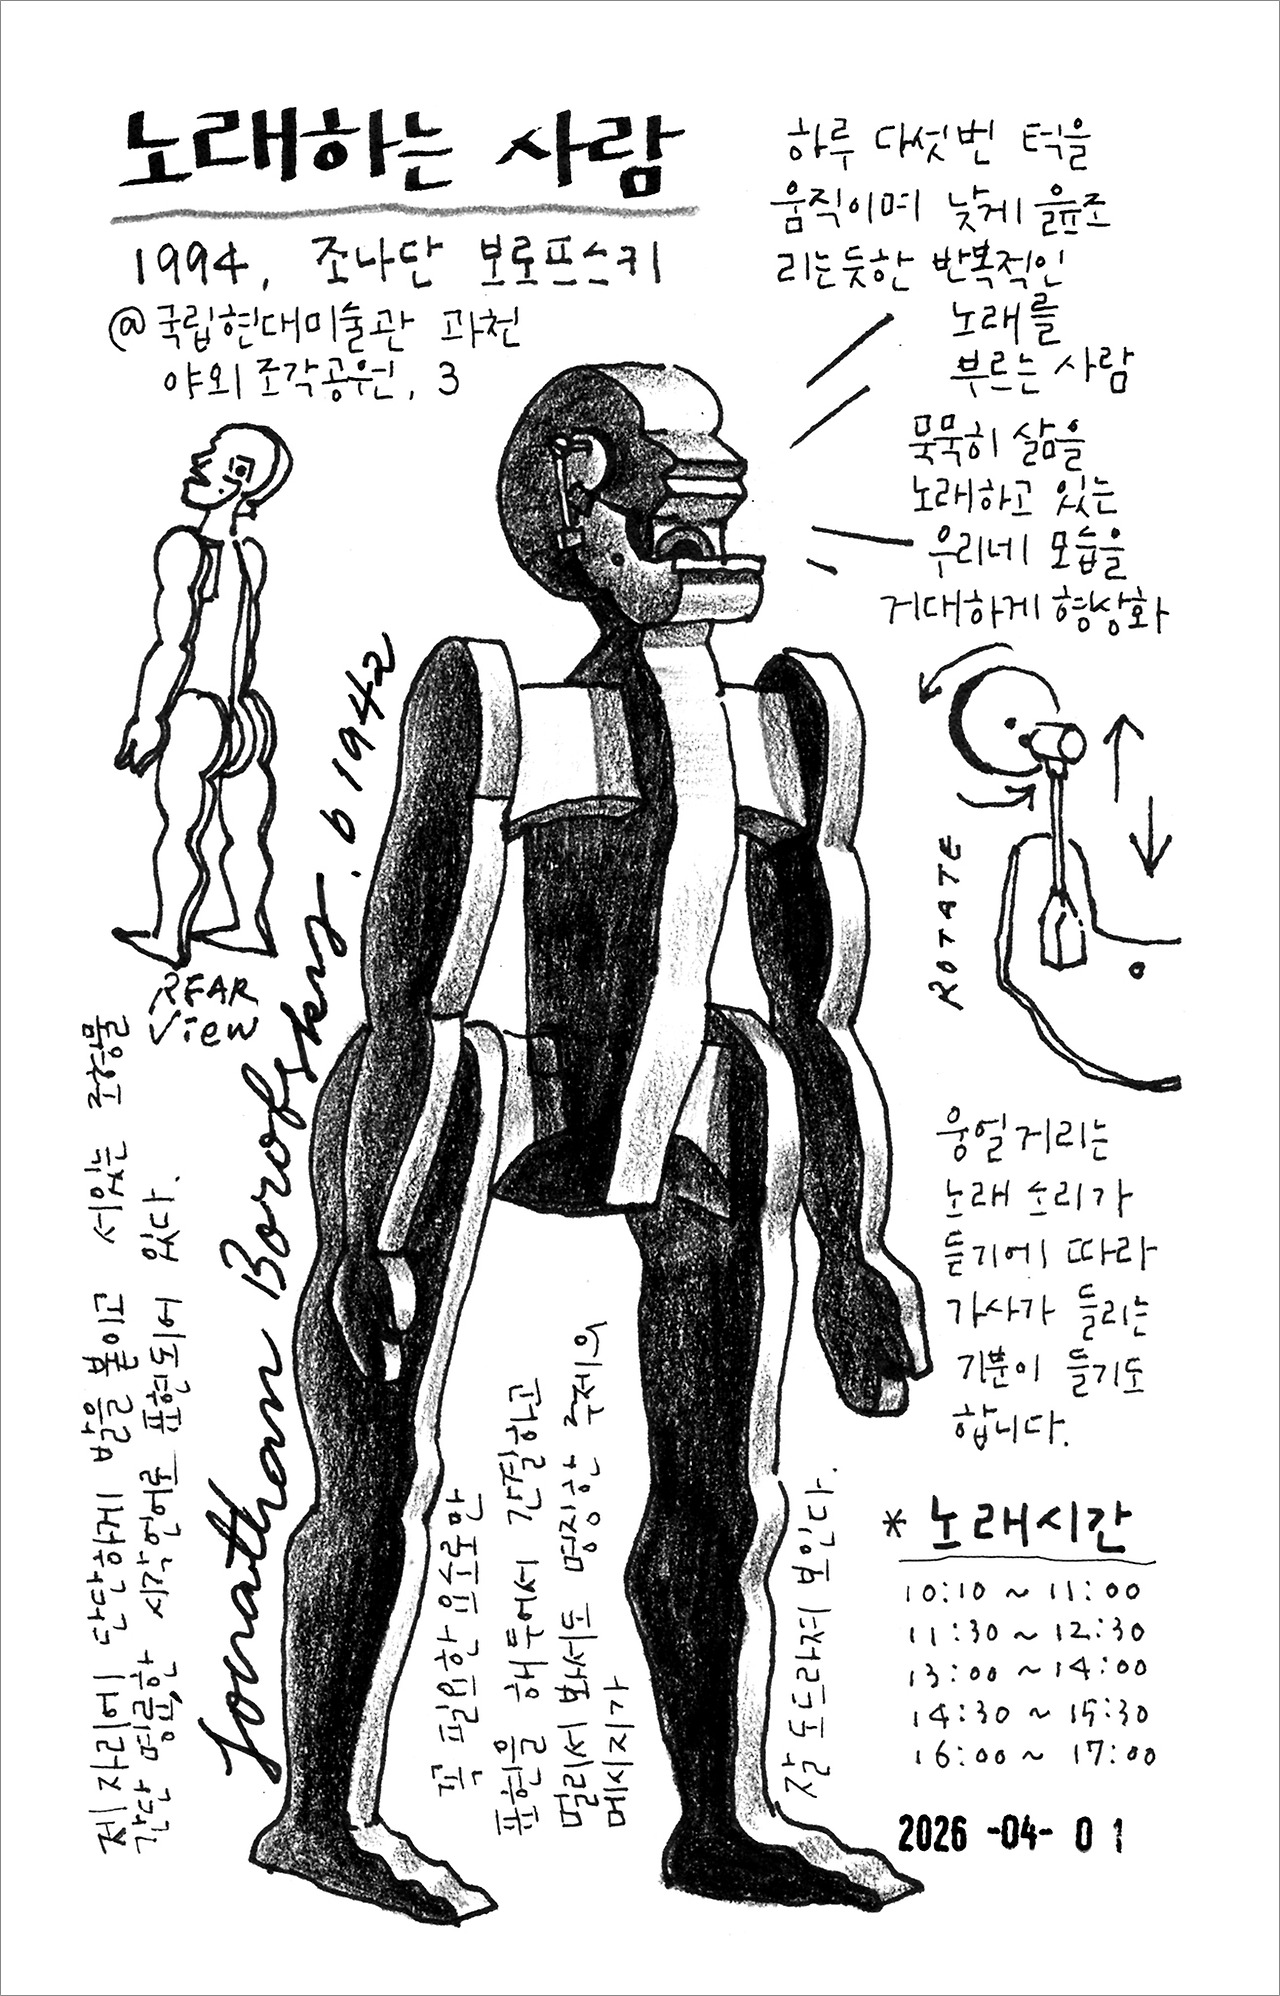 노래하는 사람
1994, 조나단 보로프스키
@국립현대미술관 과천
야외조각공원, 3
하루 다섯번 턱을
움직이며 낮게 읊조
리는듯한 반복적인
노래를
부르는 사람
묵묵히 삶을
노래하고 있는
우리네 모습을
거대하게 형상화
REAR
View
Jonathan Borofsky. b 1942
ROTATE
제 자리에 단단하게 발을 붙이고 서있는 조형물
간단 명료한 시각언어로 표현되어 있다.
꼭 필요한 요소로만
표현을 해두어서 간결하고
멀리서 봐서도 명징한 주제의
메시지가
잘 도드라져 보인다.
웅얼거리는
노래 소리가
듣기에 따라
가사가 들리는
기분이 들기도
합니다.
* 노래시간
10:10 ~ 11:00
11:30 ~ 12:30
13:00 ~ 14:00
14:30 ~ 15:30
16:00 ~ 17:00
2026 -04- 01